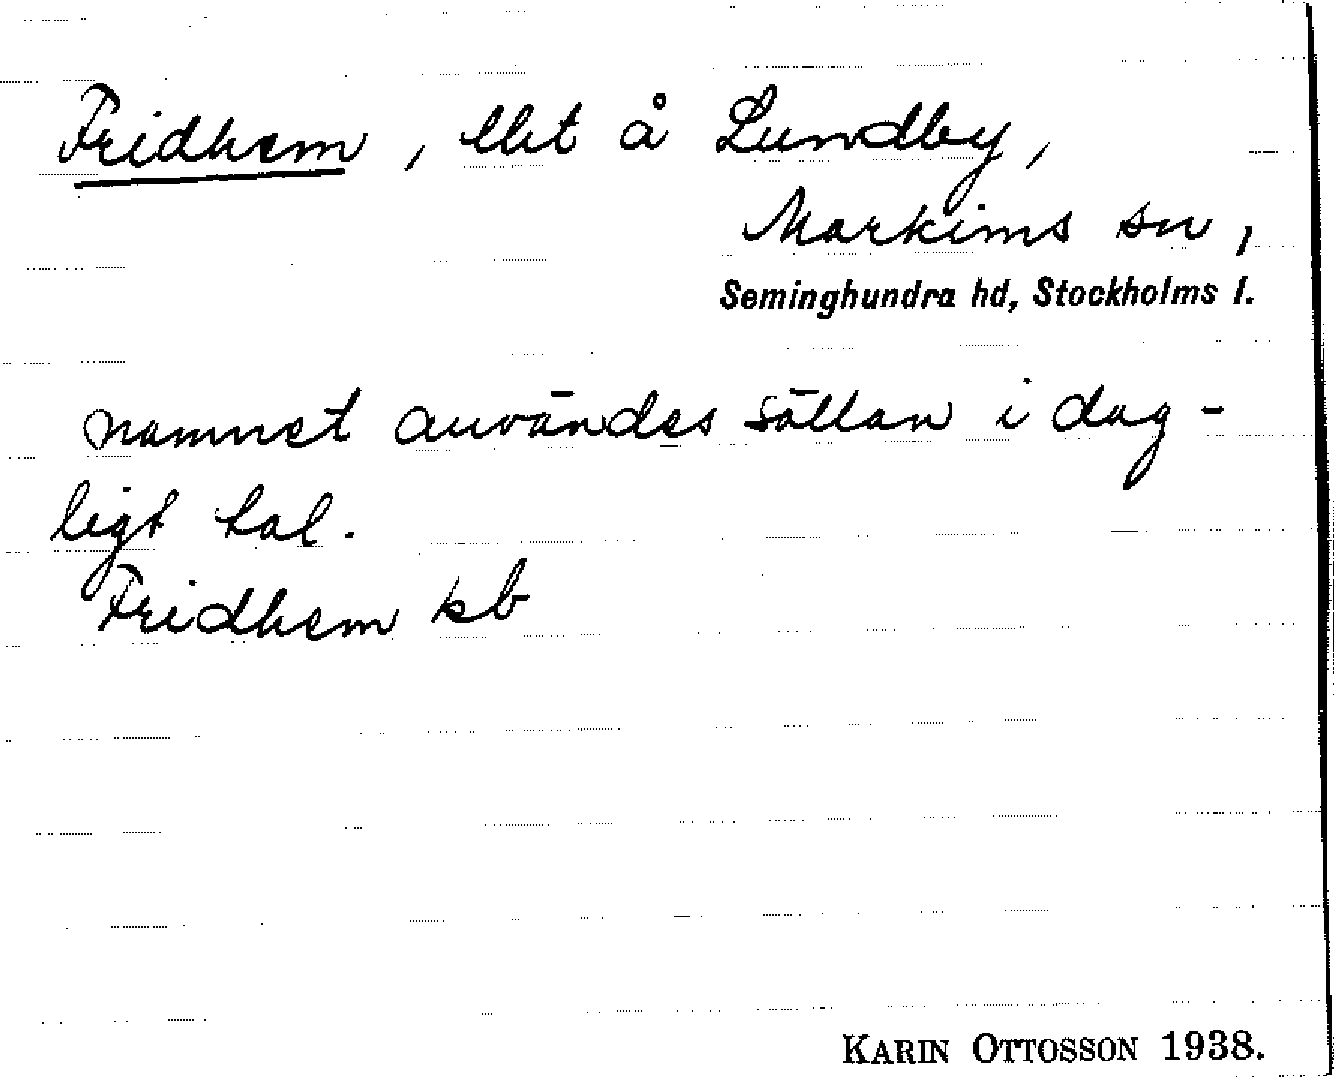 Fridhem, lht å Lundby,
Markims sn,
Seminghundra hd, Stockholms l.
namnet användes sällan i dag-
ligt tal.
Fridhem kb
KARIN OTTOSSON 1938.